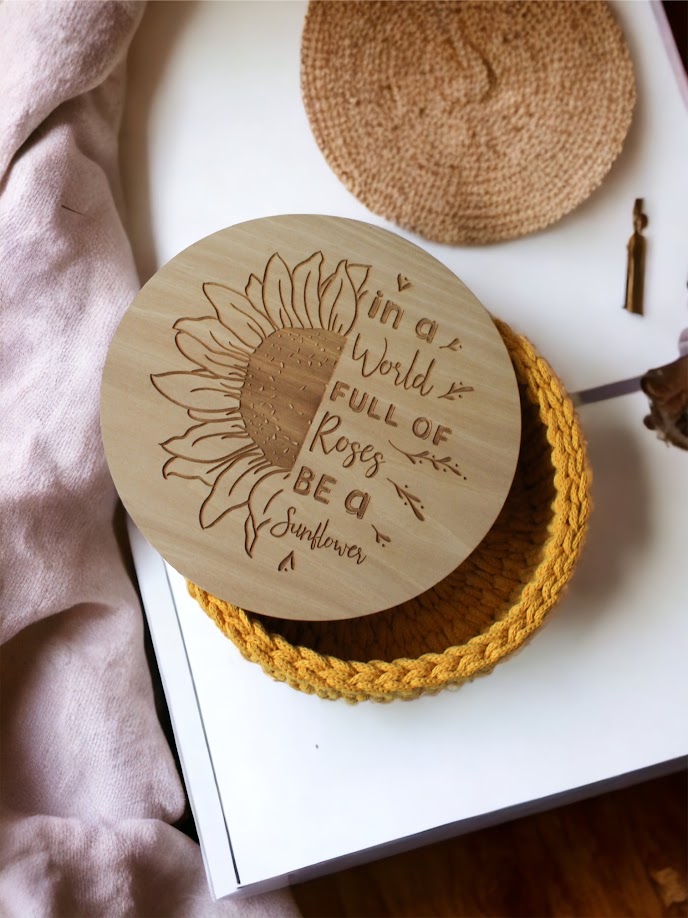 in a
World
FULL OF
Roses
BE a
Sunflower